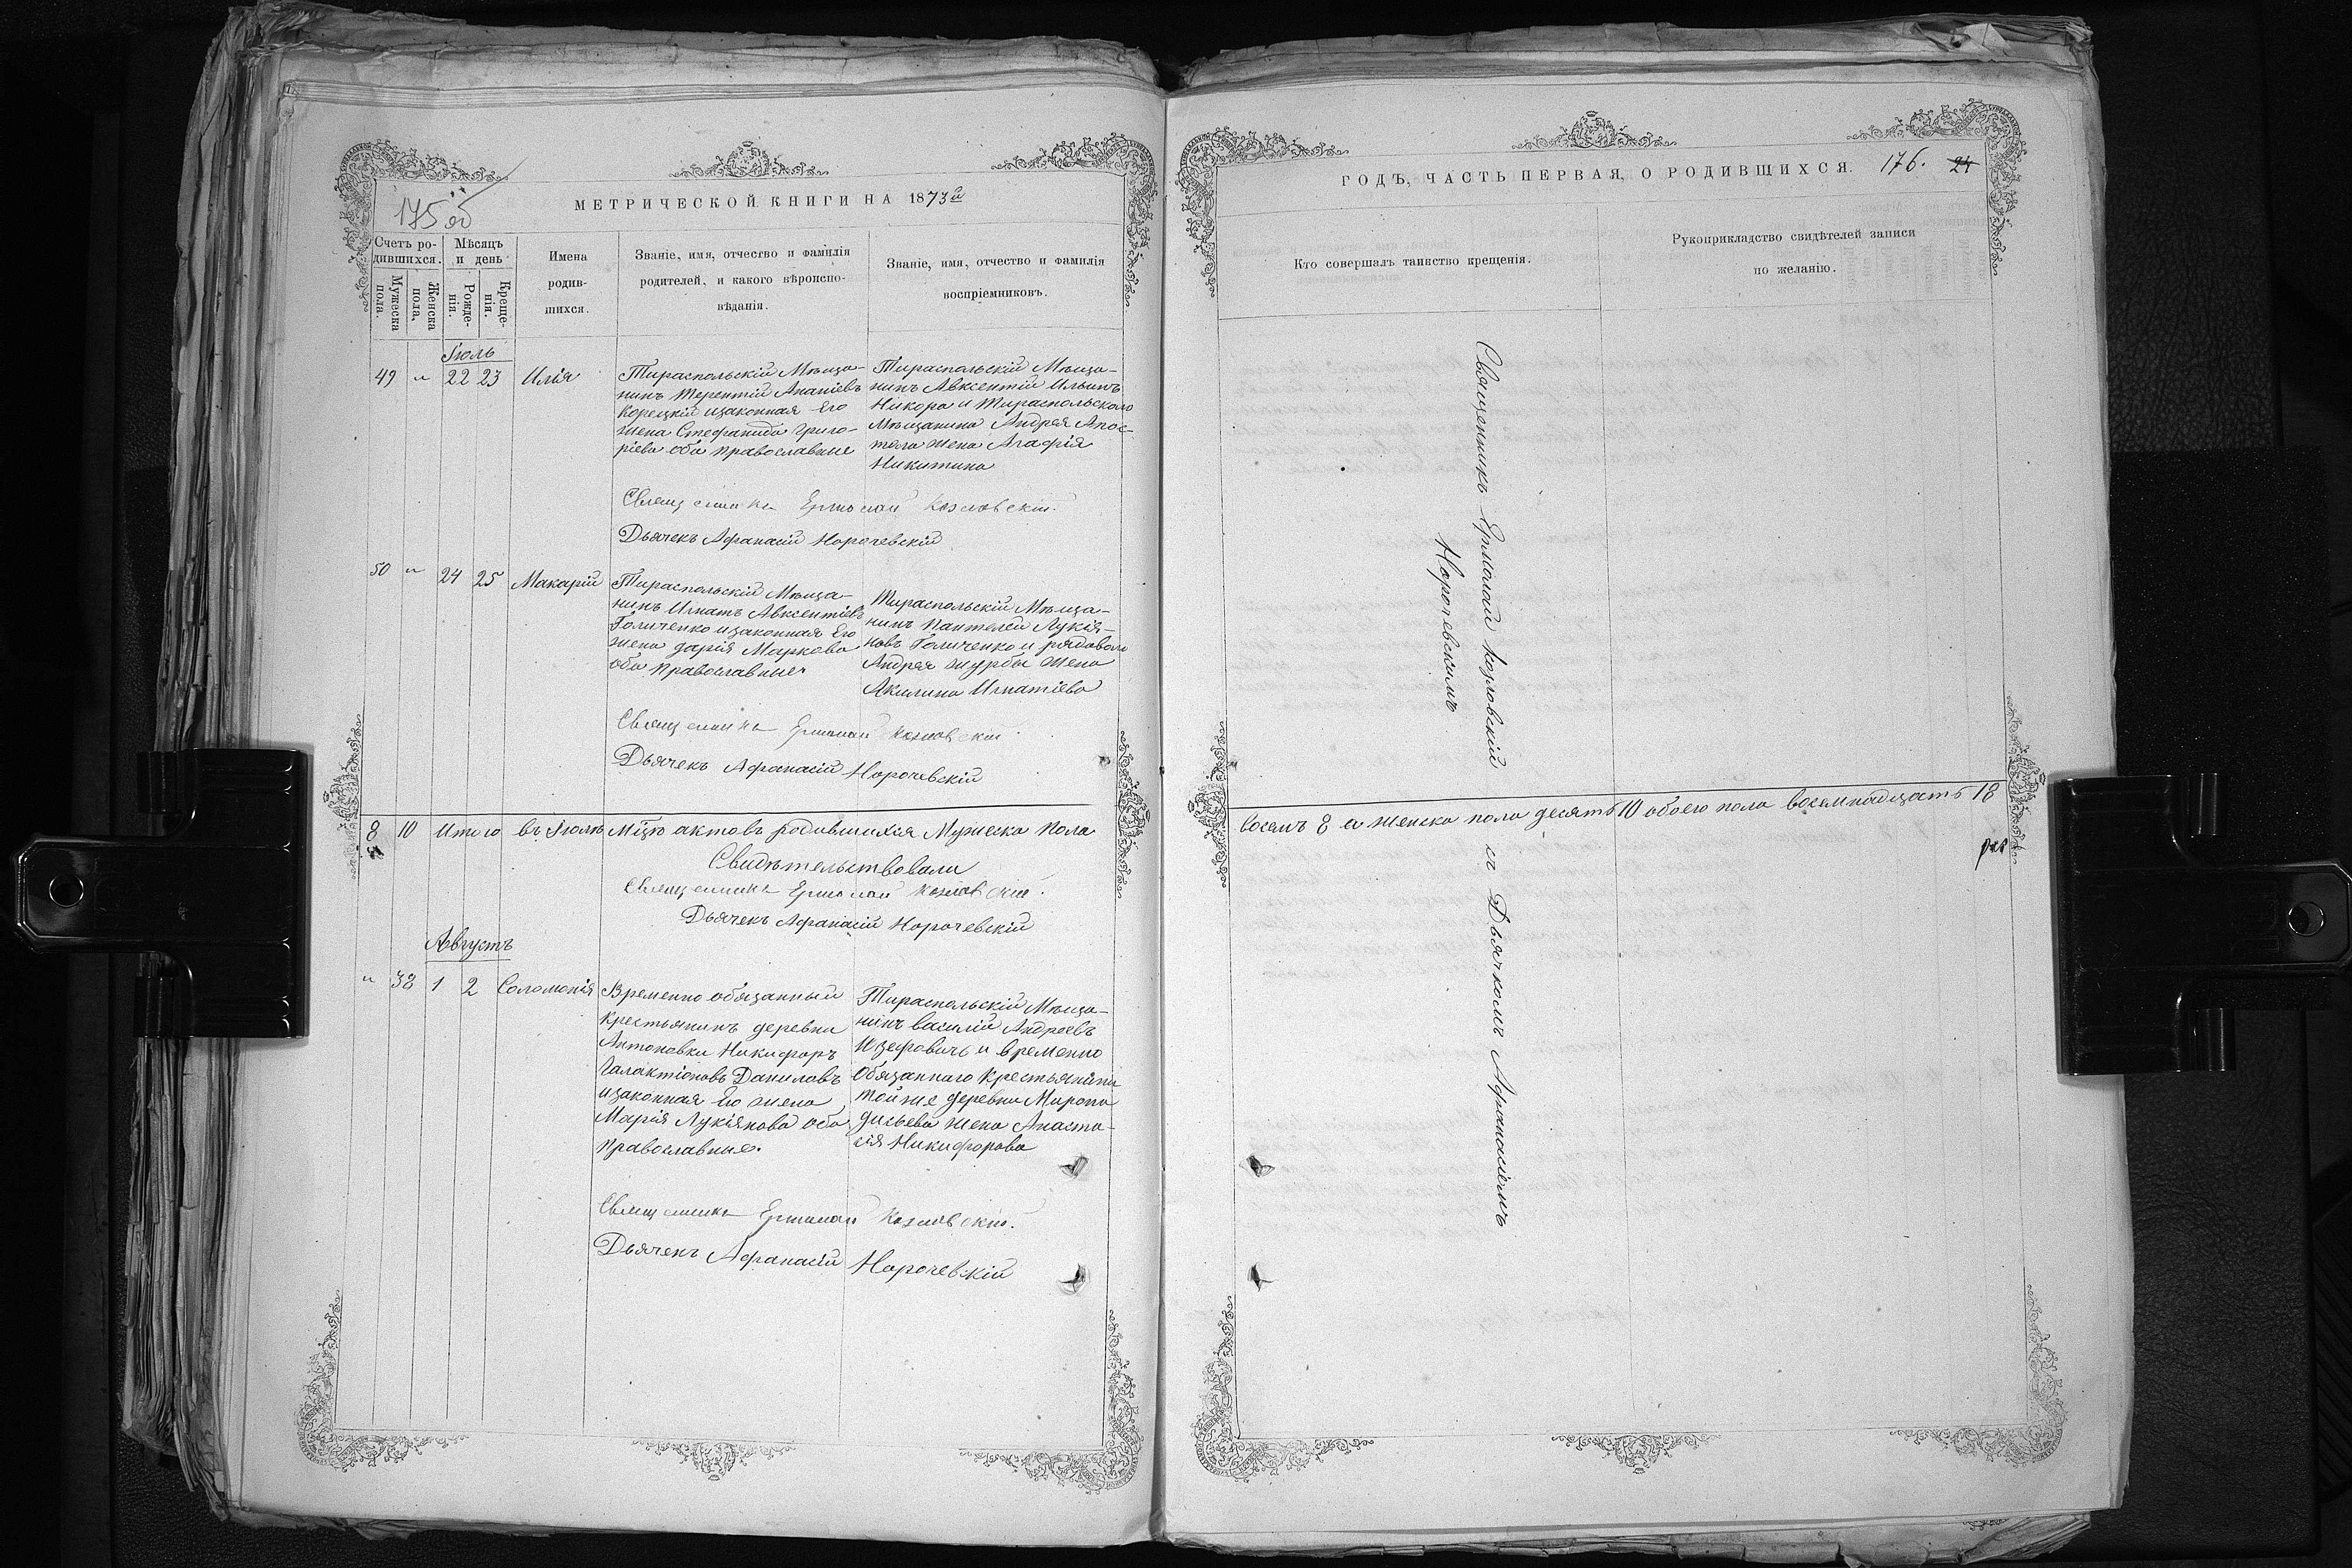 175 об
МЕТРИЧЕСКОЙ КНИГИ НА 1873й
Счетъ ро-
дившихся.
Мужеска
пола.
Женска
пола.
Мѣсяцъ
и день
Рожде-
нія.
Креще-
нія.
Имена
родив-
шихся.
Званіе, имя, отчество и фамилія
родителей, и какого вѣроиспо-
вѣданія.
Званіе, имя, отчество и фамилія
воспріемниковъ.
Іюль
49 " 22 23 Илія
Тираспольскій Мѣща-
нинъ Терентій Ананіевъ
Корецкій изаконная его
жена Стефанида Григо-
ріева оба православные
Тираспольскій Мѣща-
нинъ Авксентій Ильинъ
Никора и Тираспольского
Мѣщанина Андрея Апос-
тола жена Агафія
Никитина
Священникъ Ермолай Козловскій.
Дьячекъ Афанасій Норочевскій
50 " 24 25 Макарій
Тираспольскій Мѣща-
нинъ Игнатъ Авксентіевъ
Голиченко изаконная Его
жена дарія Маркова
оба православные
Тираспольскій Мѣща-
нинъ Пантелей Лукія-
новъ Голиченко и рядового
Андрея журбы жена
Акилина Игнатіева
Священникъ Ермолай Козловскій
Дьячекъ Афанасій Норочевскій
8 10 Итого въ Іюлѣ Мцѣ актовъ родившихся Мужеска Пола
Свидѣтельствовали
Священникъ Ермолай Козловскій.
Дьячекъ Афанасій Норочевскій
Августъ
" 38 1 2 Соломонія
Временно обязанный
крестьянинъ деревни
Антоновки Никифоръ
Галактіоновъ Даниловъ
изаконная Его жена
Марія Лукіянова оба
Православные.
Тираспольскій Мѣща-
нинъ василій Андреевъ
Юзефовичъ и временно
Обязанного Крестьянина
тойже деревни Мирона
жена Анаста-
сія Никифорова
Священникъ Ермолай Козловскій.
Дьячекъ Афанасій Норочевскій
ГОДЪ, ЧАСТЬ ПЕРВАЯ, О РОДИВШИХСЯ.
176. 24
Кто совершалъ таинство крещенія.
Рукоприкладство свидѣтелей записи
по желанію.
Священникъ Ермолай Козловскій съ Дьячкомъ Афанасіемъ
Норочевскимъ
восемъ 8 а женска пола десять 10 обоего пола восемнадцать 18